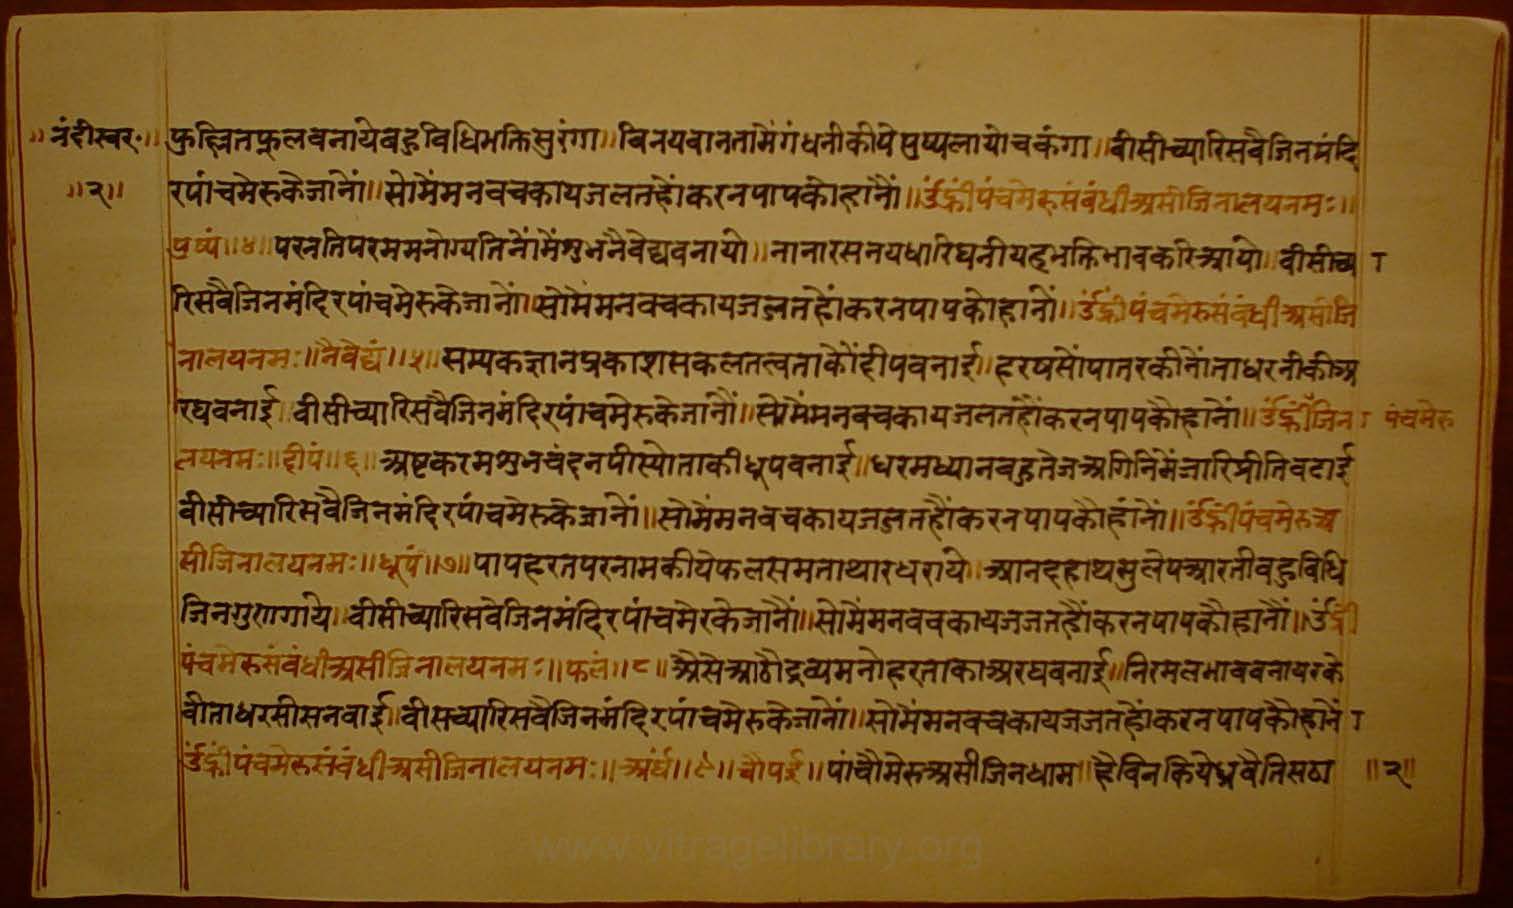 ॥नंदीस्वर॰॥ फुल्लितफूलबनायेबहुविधिभक्तिसुरंगा॥बिनयवानतामेंगंधनीकीयेसुप्पलायोचकंगा॥वीसीच्यारिसवैजिनमंदि
॥२॥ रपांचमेरुकेजानौं॥सोमैंमनवचकायजलतहौंकरनपापकोहानौं॥उंह्रींपंचमेरुसंबंधीअसीजिनालयनमः॥
पुष्पं॥४॥परनतिपरममनोग्यतिनौंमेंशुभनैवेद्यवनायो॥नानारसनयधारिघनीयहभक्तिभावकरिआयो॥वीसीच्या
रिसवैजिनमंदिरपांचमेरुकेजानौं॥सोमैंमनवचकायजजतहौंकरनपापकोहानौं॥उंह्रींपंचमेरुसंबंधीअसीजि
नालयनमः॥नैवेद्यं॥५॥सम्यकज्ञानप्रकाशसकलतत्वताकौंदीपवनाई॥हरषसोंपातरकीनौंताधरनीकीअ
रघवनाई॥वीसीच्यारिसवैजिनमंदिरपांचमेरुकेजानौं॥सोमैंमनवचकायजलतहौंकरनपापकौहानौं॥उंह्रींजिना पंचमेरु
लयनमः॥दीपं॥६॥अष्टकरमशुभचंदनपीस्योताकीधूपवनाई॥धरमध्यानबहुतेजअगिनिमेंजारिप्रीतिवढाई
वीसीच्यारिसवैजिनमंदिरपांचमेरुकेजानौं॥सोमैंमनवचकायजजतहौंकरनपापकौहांनौं॥उंह्रींपंचमेरुअ
सीजिनालयनमः॥धूपं॥७॥पापहरनपरनामकीयेफलसमताथारधराये॥आनदहाथसुलेपआरतीवहुविधि
जिनगुणगाये॥वीसीच्यारिसवैजिनमंदिरपांचमेरकेजानौं॥सोमैंमनवचकायजजतहौंकरनपापकौहानौं॥उंह्रीं
पंचमेरुसंबंधीअसीजिनालयनमः॥फलं॥८॥अैसेआठौद्रव्यमनोहरताकाअरघवनाई॥निरमलभाववनायरके
वीताधरसीसनवाई॥वीसच्यारिसवैजिनमंदिरपांचमेरुकेजानौं॥सोमैंमनवचकायजजतहौंकरनपापकौहानौं
उंह्रींपंचमेरुसंबंधीअसीजिनालयनमः॥अर्घं॥९॥चौपई॥पांचौमेरुअसीजिनधाम॥हैविनकियेध्रुवैतिसठा ॥२॥
www.vitragelibrary.org